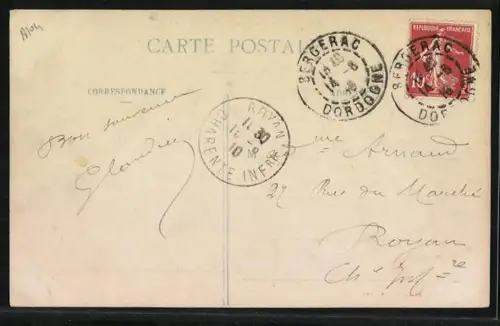 CARTE POSTALE
CORRESPONDANCE
Bon souvenir
BERGERAC
DORDOGNE
BERGERAC
DOR
REPUBLIQUE FRANÇAISE
ROYAN
CHARENTE INFRE
Mme Arnaud
27 Rue du Marché
Royan
Ch Infre